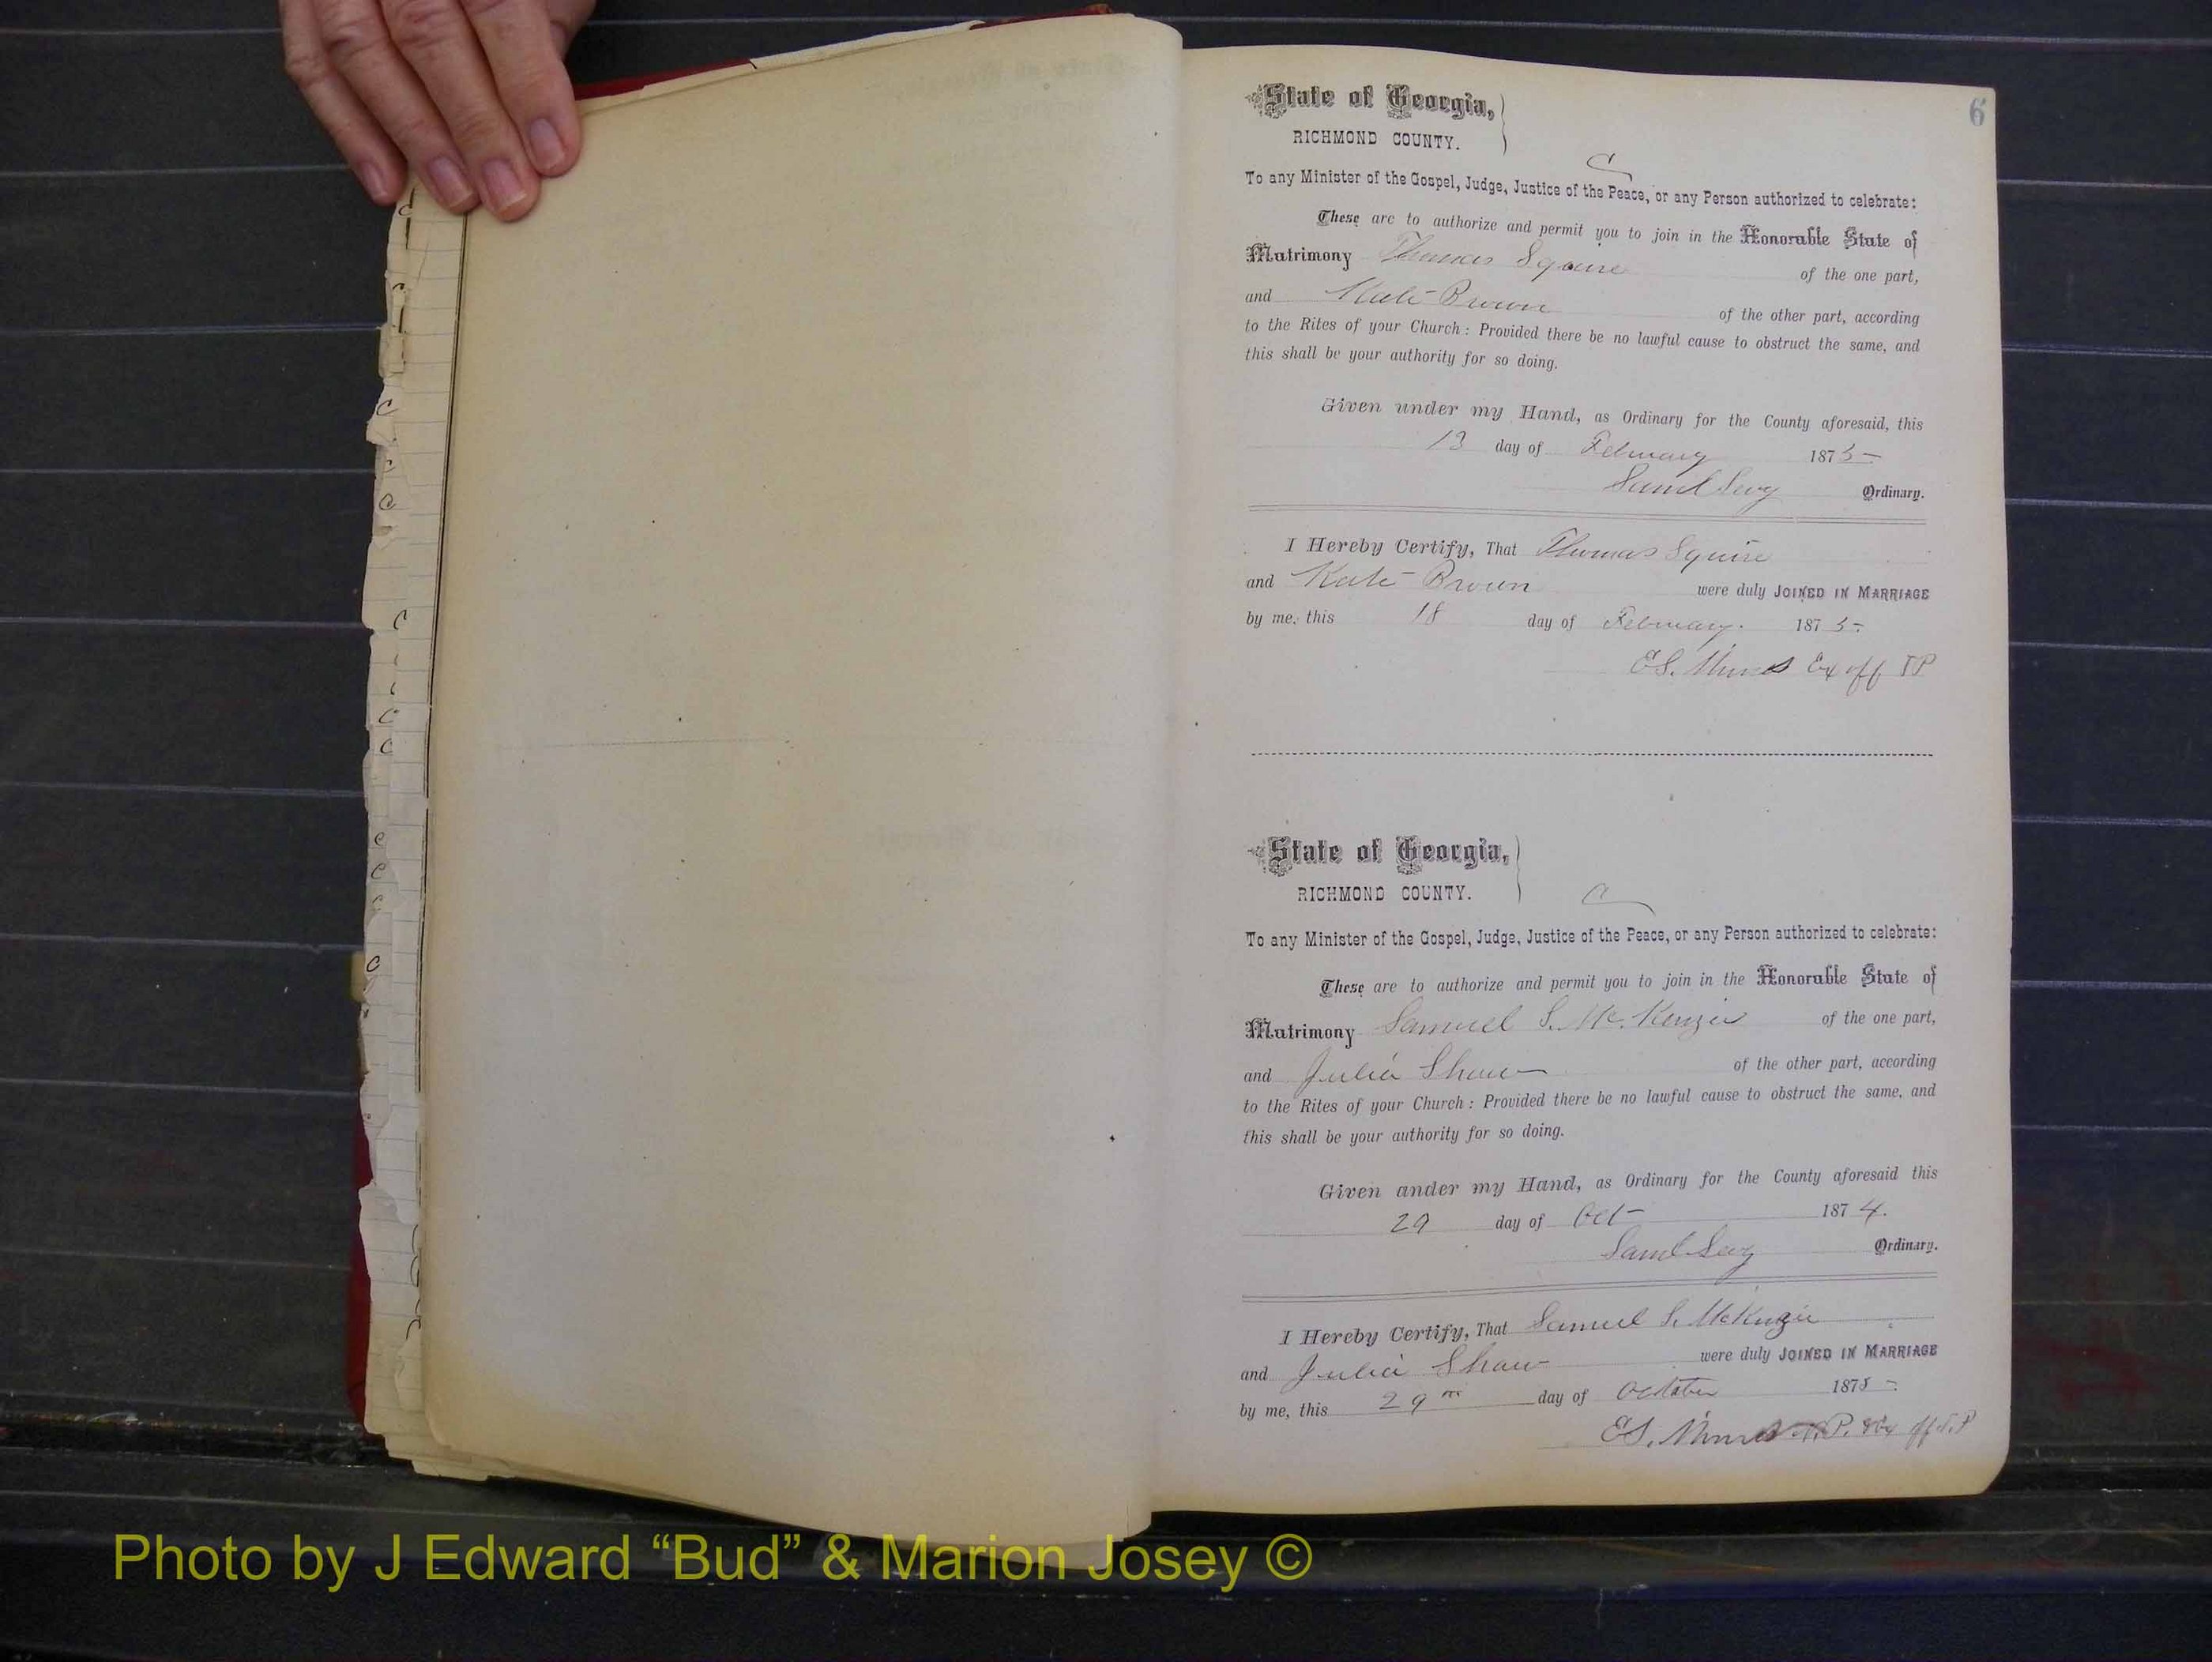 6
State of Georgia,
RICHMOND COUNTY.
C
To any Minister of the Gospel, Judge, Justice of the Peace, or any Person authorized to celebrate:
These are to authorize and permit you to join in the Honorable State of
Matrimony Thomas Squire of the one part,
and Kate Brown of the other part, according
to the Rites of your Church: Provided there be no lawful cause to obstruct the same, and
this shall be your authority for so doing.
Given under my Hand, as Ordinary for the County aforesaid, this
13 day of February 1875
Saml Levy Ordinary.
I Hereby Certify, That Thomas Squire
and Kate Brown were duly JOINED IN MARRIAGE
by me, this 18 day of February. 1875.
E.S. Ex off J P
State of Georgia,
RICHMOND COUNTY.
C
To any Minister of the Gospel, Judge, Justice of the Peace, or any Person authorized to celebrate:
These are to authorize and permit you to join in the Honorable State of
Matrimony Samuel S. McKenzie of the one part,
and Julia Shaw of the other part, according
to the Rites of your Church: Provided there be no lawful cause to obstruct the same, and
this shall be your authority for so doing.
Given under my Hand, as Ordinary for the County aforesaid this
29 day of Oct 1874.
Saml Levy Ordinary.
I Hereby Certify, That Samuel S. McKenzie
and Julia Shaw were duly JOINED IN MARRIAGE
by me, this 29th day of October 1875
E.S. N.P. & Ex off J.P
Photo by J Edward “Bud” & Marion Josey ©